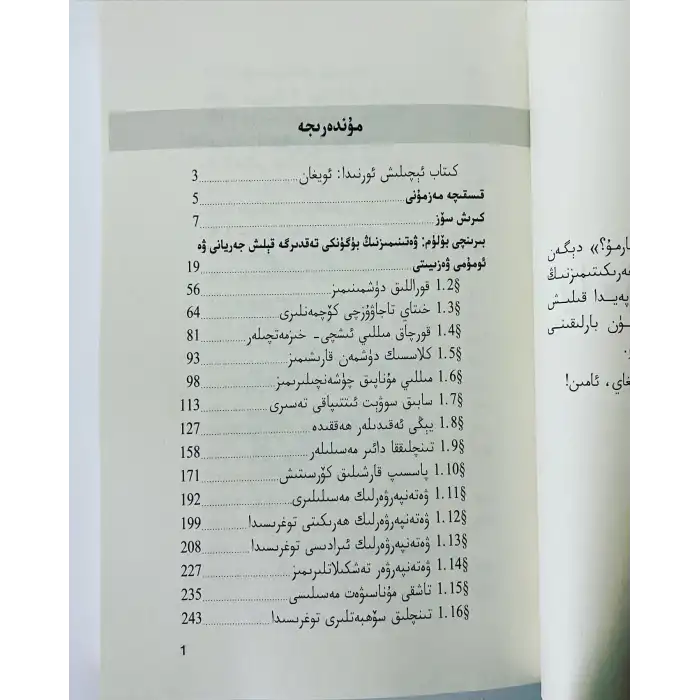 مۇندەرىجە
كىتاب ئېچىلىش ئورنىدا: ئويغان 3
قىسقىچە مەزمۇنى 5
كىرىش سۆز 7
بىرىنچى بۆلۈم: ۋەتىنىمىزنىڭ بۈگۈنكى تەقدىرگە قېلىش جەريانى ۋە
ئومۇمى ۋەزىيىتى 19
1.2§ قوراللىق دۈشمىنىمىز 56
1.3§ خىتاي تاجاۋۇزچى كۆچمەنلىرى 64
1.4§ قورچاق مىللىي ئىشچى- خىزمەتچىلەر 81
1.5§ كلاسسىك دۈشمەن قارىشىمىز 93
1.6§ مىللىي مۇناپىق چۈشەنچىلىرىمىز 98
1.7§ سابىق سوۋېت ئىتتىپاقى تەسىرى 113
1.8§ يېڭى ئەقىدىلەر ھەققىدە 127
1.9§ تىنچلىققا دائىر مەسىلىلەر 158
1.10§ پاسسىپ قارشىلىق كۆرسىتىش 171
1.11§ ۋەتەنپەرۋەرلىك مەسىلىلىرى 192
1.12§ ۋەتەنپەرۋەرلىك ھەرىكىتى توغرىسىدا 199
1.13§ ۋەتەنپەرۋەرلىك ئىرادىسى توغرىسىدا 208
1.14§ ۋەتەنپەرۋەر تەشكىلاتلىرىمىز 227
1.15§ تاشقى مۇناسىۋەت مەسىلىسى 235
1.16§ تىنچلىق سۆھبەتلىرى توغرىسىدا 243
1
ارمۇ؟» دېگەن
ھەرىكىتىمىزنىڭ
پەيدا قىلىش
ئۈن بارلىقىنى
غاي، ئامىن!